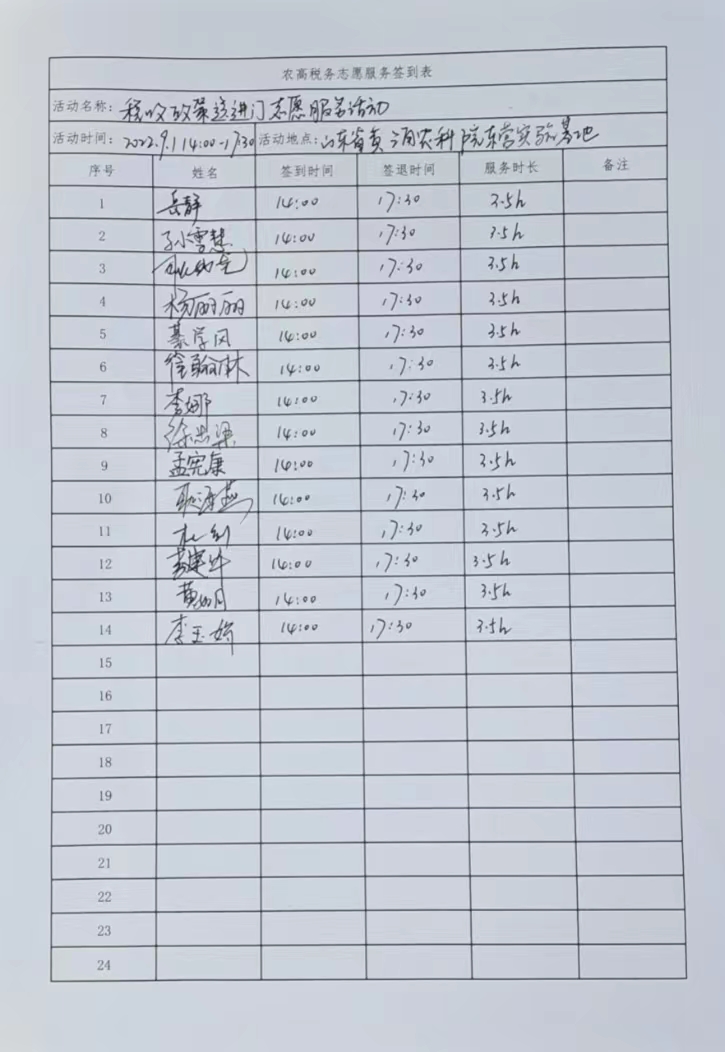 农高税务志愿服务签到表
活动名称: 税收政策送进门志愿服务活动
活动时间: 2022.9.1 14:00-17:30 活动地点: 山东省黄三角农科院东营实验基地
序号 姓名 签到时间 签退时间 服务时长 备注
1 岳静 14:00 17:30 3.5h
2 孙雪慧 14:00 17:30 3.5h
3 14:00 17:30 3.5h
4 杨丽丽 14:00 17:30 3.5h
5 綦学风 14:00 17:30 3.5h
6 徐翰林 14:00 17:30 3.5h
7 李娜 14:00 17:30 3.5h
8 徐忠梁 14:00 17:30 3.5h
9 孟宪康 14:00 17:30 3.5h
10 14:00 17:30 3.5h
11 杜钊 14:00 17:30 3.5h
12 14:00 17:30 3.5h
13 14:00 17:30 3.5h
14 李玉娇 14:00 17:30 3.5h
15
16
17
18
19
20
21
22
23
24